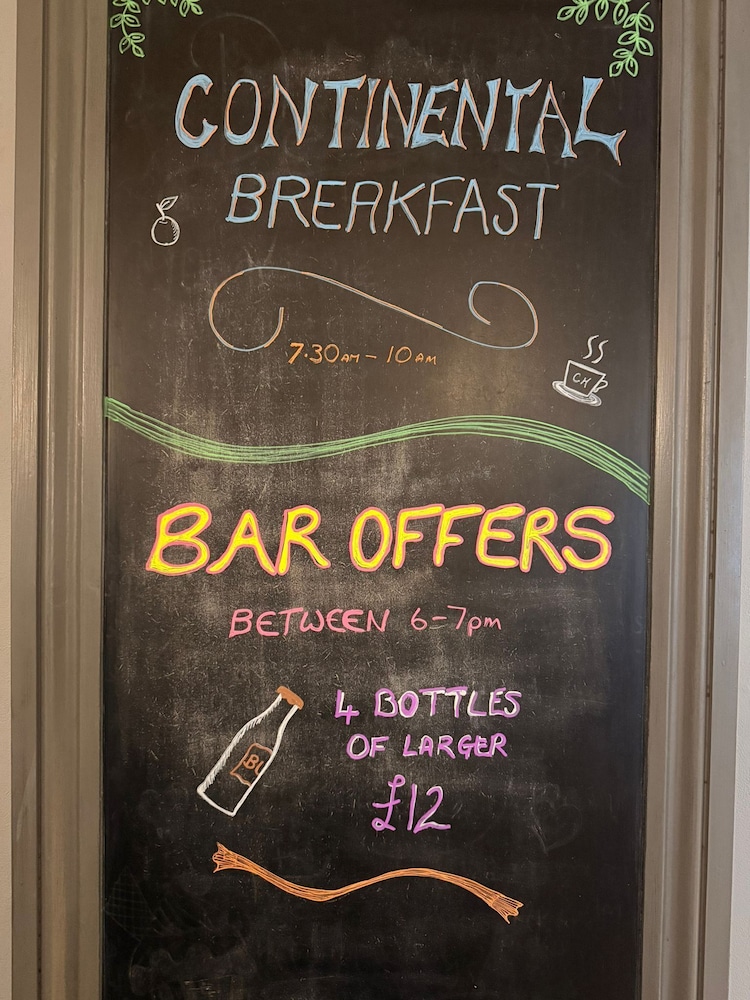 CONTINENTAL
BREAKFAST
7.30AM - 10AM
CH
BAR OFFERS
BETWEEN 6-7pm
4 BOTTLES
OF LARGER
BU
£12